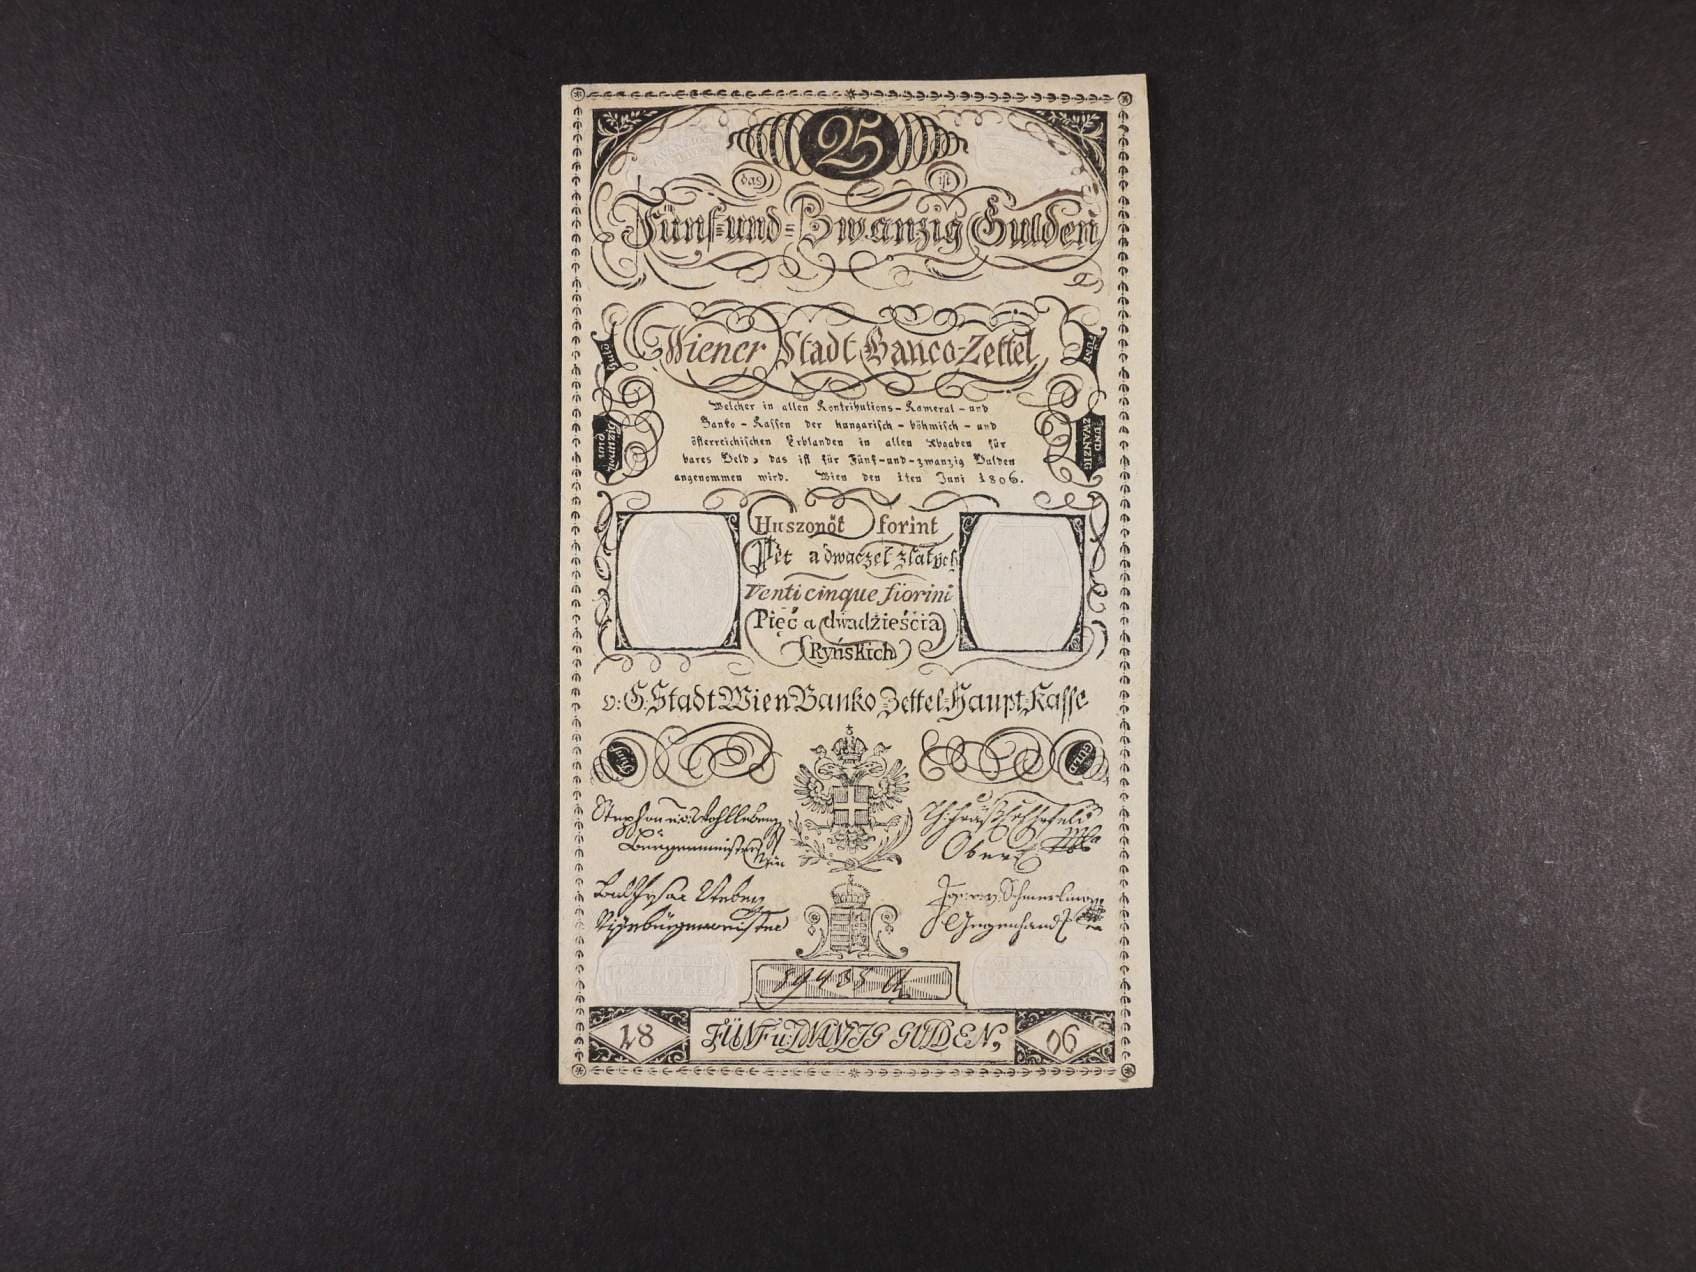 25
das ist
Fünf-und-Zwanzig Gulden
Wiener Stadt Banco-Zettel
FÜNF
Welcher in allen Kontributions-Kameral-und
Banko-Kassen der hungarisch-böhmisch-und
österreichischen Erblanden in allen Abgaben für
bares Geld, das ist für Fünf-und-zwanzig Gulden
angenommen wird. Wien den 1ten Juni 1806.
UND
ZWANZIG
Huszonöt forint
Pèt a dwaczet zlatych
Venti cinque fiorini
Pięć a dwadzieścia
Ryńskich
v: G: Stadt Wien Banko Zettel Haupt Kasse
Fünf
GULD
Bürgermeister
Vizebürgermeister
18
FÜNF u: ZWANZIG GULDEN,
06